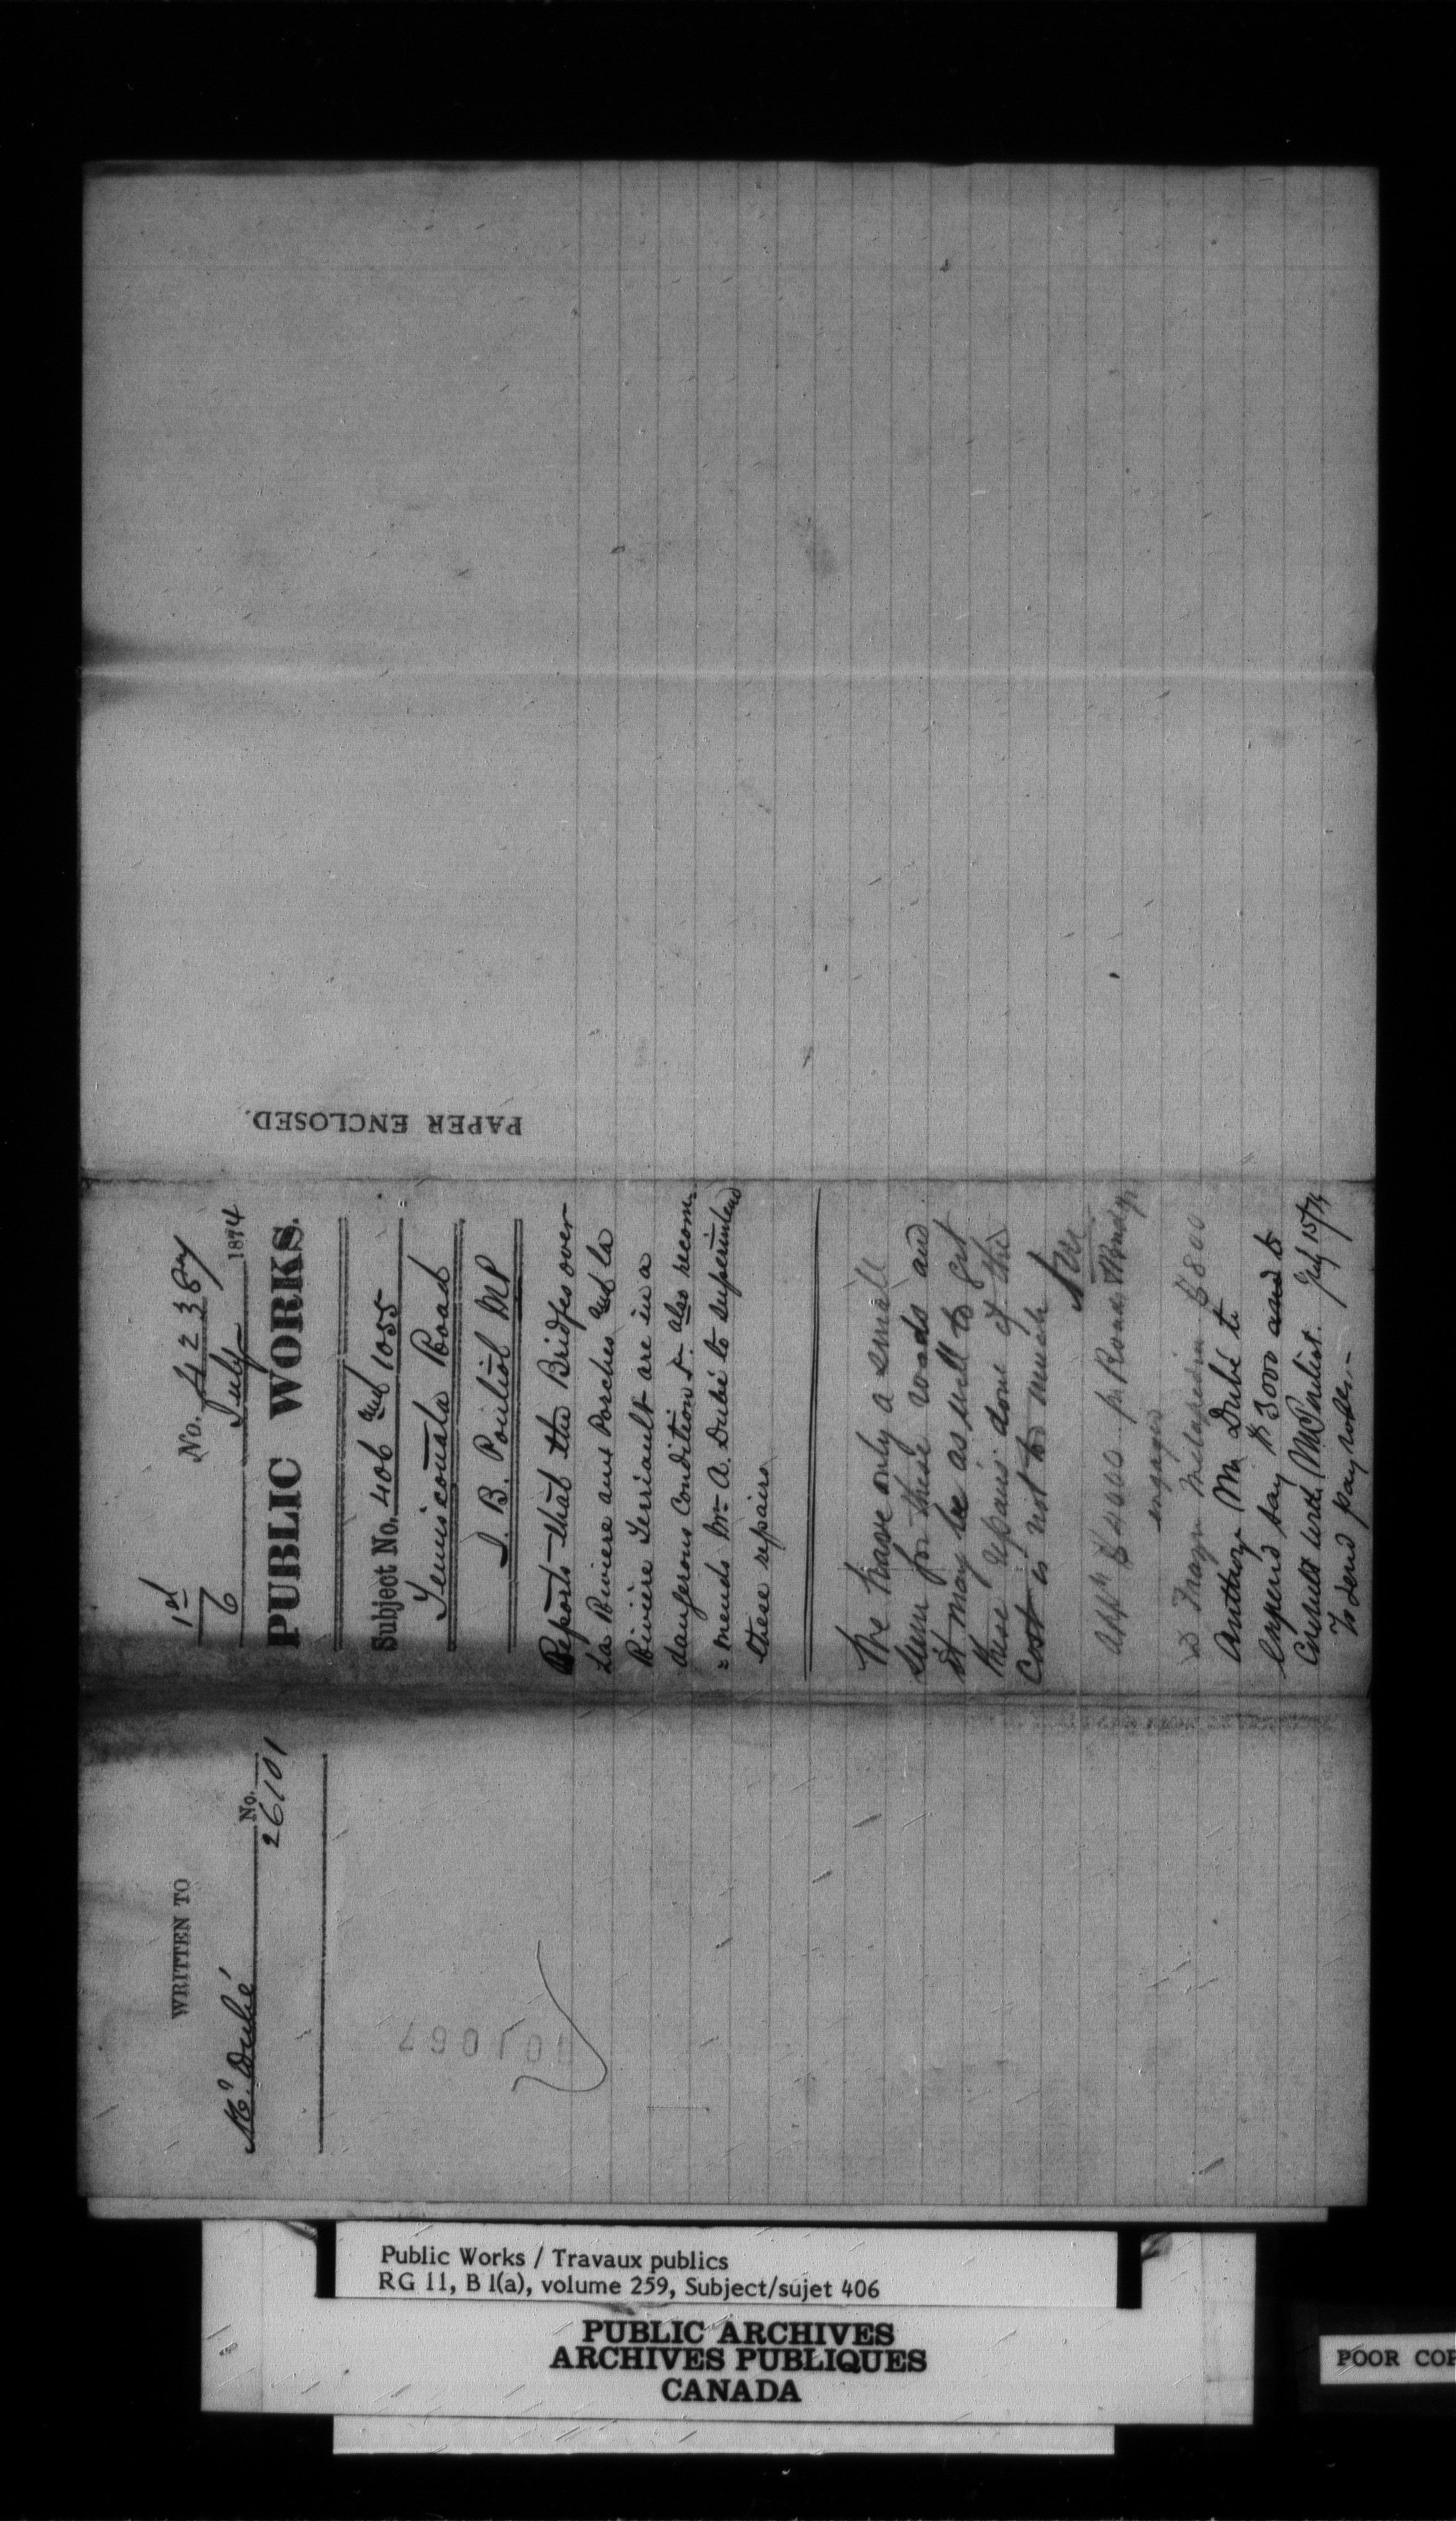 1st
6
No. 4238
July 1874
PUBLIC WORKS.
Subject No. 406 and 1055
Temiscouata Road
J. B. Pouliot MP
Reports that the Bridges over
La Riviere aux Perches and la
Riviere Terriault are in a
dangerous Condition &. also recom-
=mends Mr. A. Dubé to superintend
these repairs
We have only a small
sum for these roads and
it may be as well to get
these repairs done if the
cost is not to much
engaged
Authorize Mr Dubé to
expend say $3000 and to
Consult with
July 15/74
To send pay rolls.-
PAPER ENCLOSED.
WRITTEN TO
Mr. Dubé
No.
26101
101067
Public Works / Travaux publics
RG 11, B 1(a), volume 259, Subject/sujet 406
PUBLIC ARCHIVES
ARCHIVES PUBLIQUES
CANADA
POOR COP